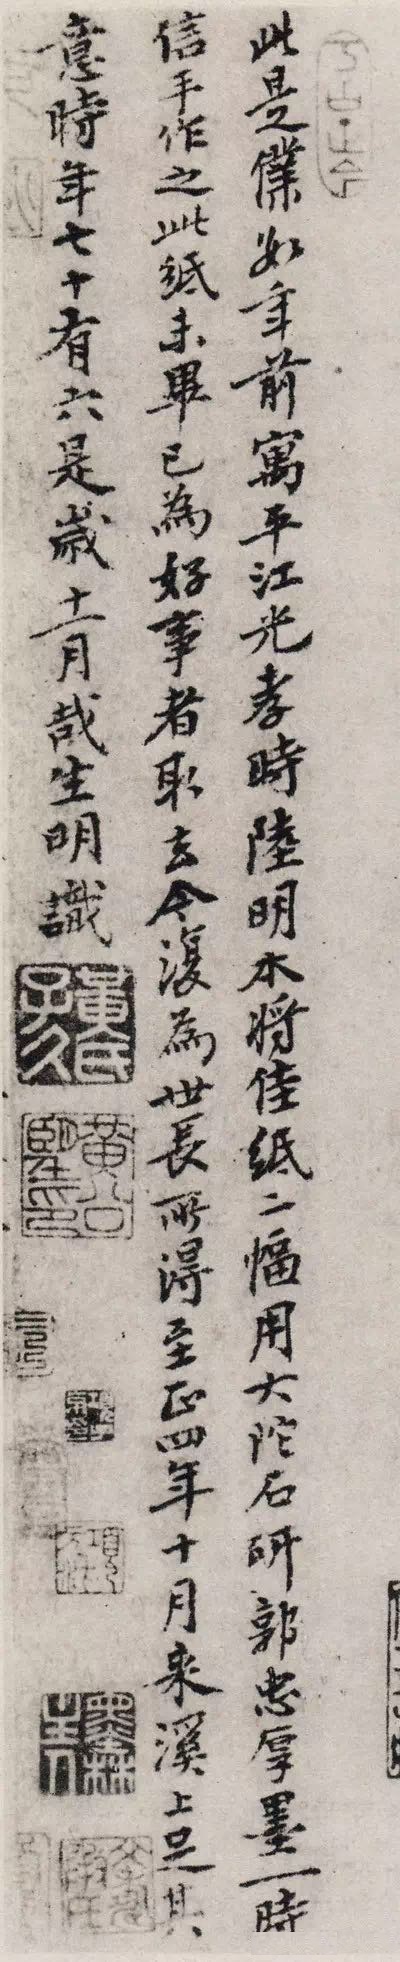 此是僕數年前寓平江光孝時陸明本將佳紙二幅用大陀石研郭忠厚墨一時
信手作之此紙未畢已為好事者取去今復為世長所得至正四年十月來溪上足其
意時年七十有六是歲十一月哉生明識
黃氏子久
黃公望印